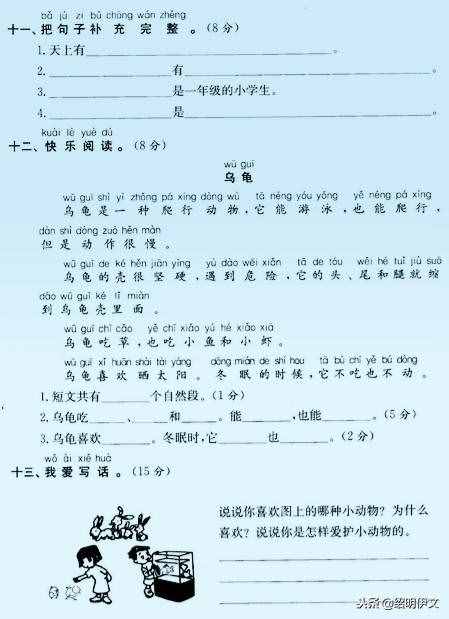 bǎ jù zi bǔ chōng wán zhěng
十一、把句子补充完整。(8分)
1.天上有。
2.有。
3.是一年级的小学生。
4.是。
kuài lè yuè dú
十二、快乐阅读。(8分)
wū guī
乌龟
wū guī shì yì zhǒng pá xíng dòng wù tā néng yóu yǒng yě néng pá xíng
乌龟是一种爬行动物,它能游泳,也能爬行,
dàn shì dòng zuò hěn màn
但是动作很慢。
wū guī de ké hěn jiān yìng yù dào wēi xiǎn tā de tóu wěi hé tuǐ jiù suō
乌龟的壳很坚硬,遇到危险,它的头、尾和腿就缩
dào wū guī ké lǐ miàn
到乌龟壳里面。
wū guī chī cǎo yě chī xiǎo yú hé xiǎo xiā
乌龟吃草,也吃小鱼和小虾。
wū guī xǐ huān shài tài yáng dōng mián de shí hou tā bù chī yě bú dòng
乌龟喜欢晒太阳。冬眠的时候,它不吃也不动。
1.短文共有个自然段。(1分)
2.乌龟吃、和。能,也能。(5分)
3.乌龟喜欢。冬眠时,它也。(2分)
wǒ ài xiě huà
十三、我爱写话。(15分)
说说你喜欢图上的哪种小动物?为什么
喜欢?说说你是怎样爱护小动物的。
头条@绍明伊文